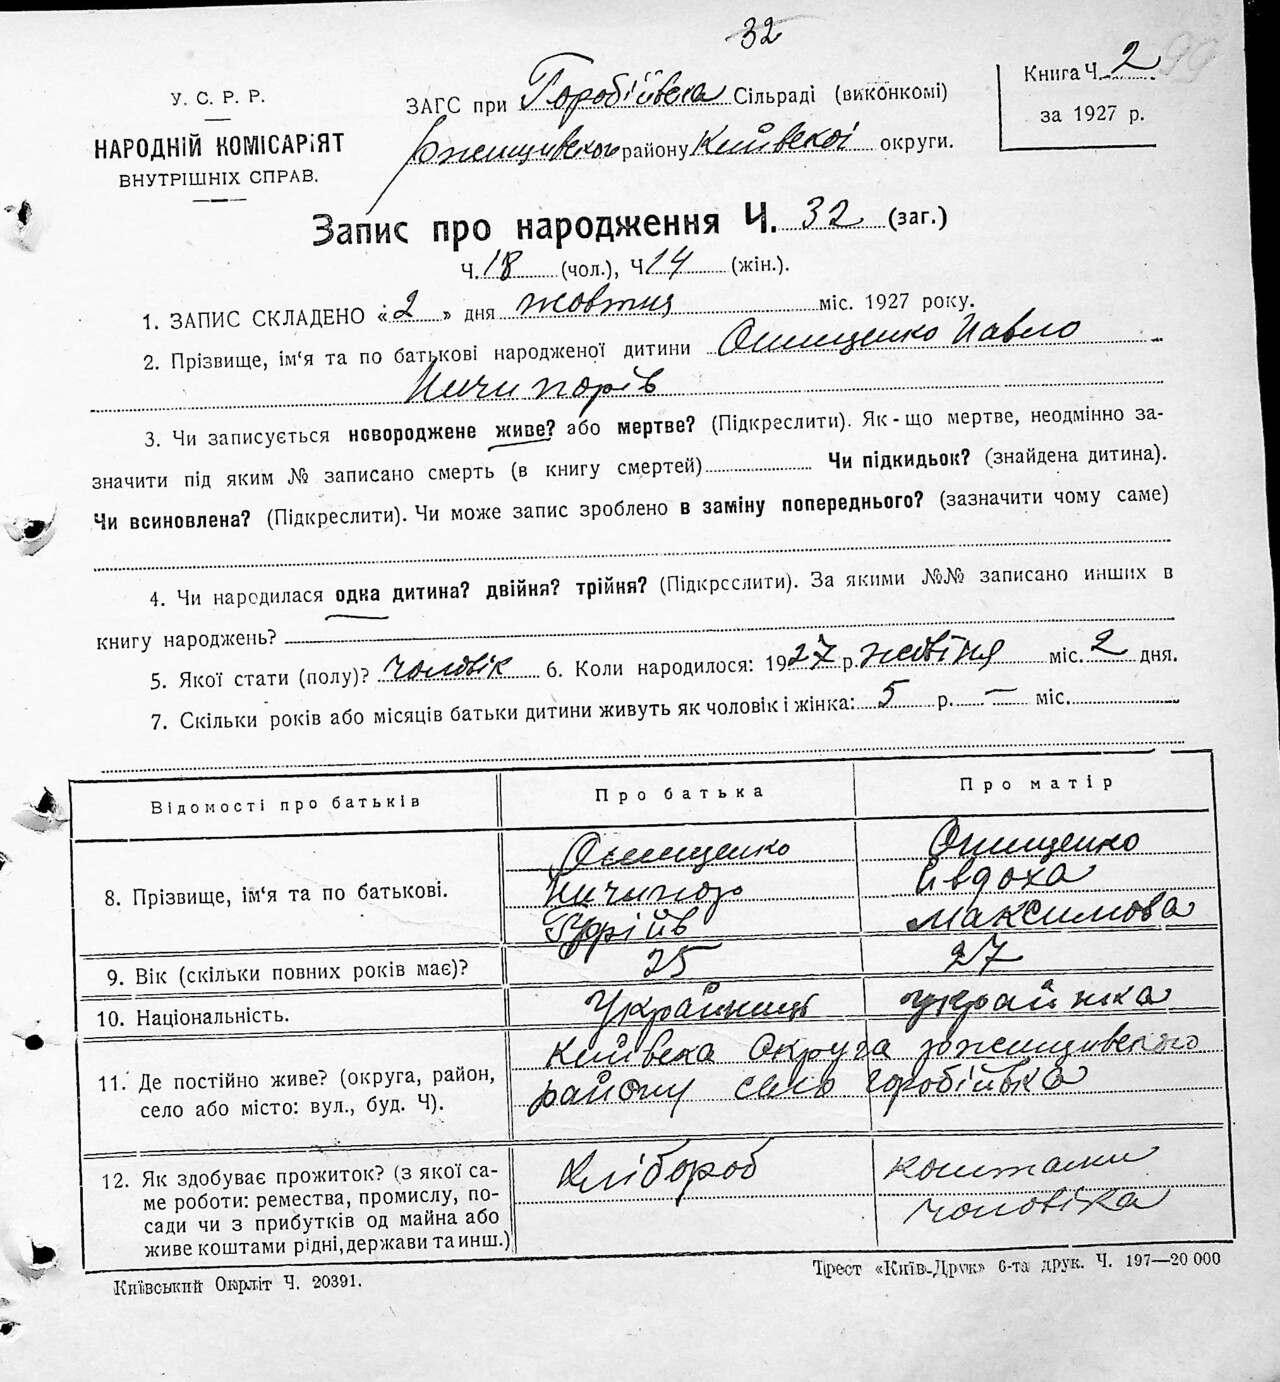 32
У. С. Р. Р.
НАРОДНІЙ КОМІСАРІЯТ
ВНУТРІШНІХ СПРАВ.
ЗАГС при Горобіївска Сільраді (виконкомі)
Ржищівського району Київської округи.
Книга Ч. 2
99
за 1927 р.
Запис про народження Ч. 32 (заг.)
Ч. 18 (чол.), Ч 14 (жін.).
1. ЗАПИС СКЛАДЕНО « 2 » дня жовтня міс. 1927 року.
2. Прізвище, ім‘я та по батькові народженої дитини Онищенко Павло
Ничипорів
3. Чи записується новороджене живе? або мертве? (Підкреслити). Як-що мертве, неодмінно за-
значити під яким № записано смерть (в книгу смертей) Чи підкидьок? (знайдена дитина).
Чи всиновлена? (Підкреслити). Чи може запис зроблено в заміну попереднього? (зазначити чому саме)
4. Чи народилася одна дитина? двійня? трійня? (Підкреслити). За якими №№ записано инших в
книгу народжень?
5. Якої стати (полу)? чоловік 6. Коли народилося: 1927 р. жовтня міс. 2 дня.
7. Скільки років або місяців батьки дитини живуть як чоловік і жінка: 5 р. — міс.
Відомості про батьків Про батька Про матір
8. Прізвище, ім‘я та по батькові.
Онищенко Онищенко
Ничипор Євдоха
Максимова
9. Вік (скільки повних років має)? 25 27
10. Національність. Українець українка
11. Де постійно живе? (округа, район,
село або місто: вул., буд. Ч).
Київска округа Ржищівского
району село Горобіївка
12. Як здобуває прожиток? (з якої са-
ме роботи: ремества, промислу, по-
сади чи з прибутків од майна або
живе коштами рідні, держави та инш.)
Хлібороб коштами
чоловіка
Київський Окрліт Ч. 20391.
Трест «Київ-Друк» 6-та друк. Ч. 197—20 000